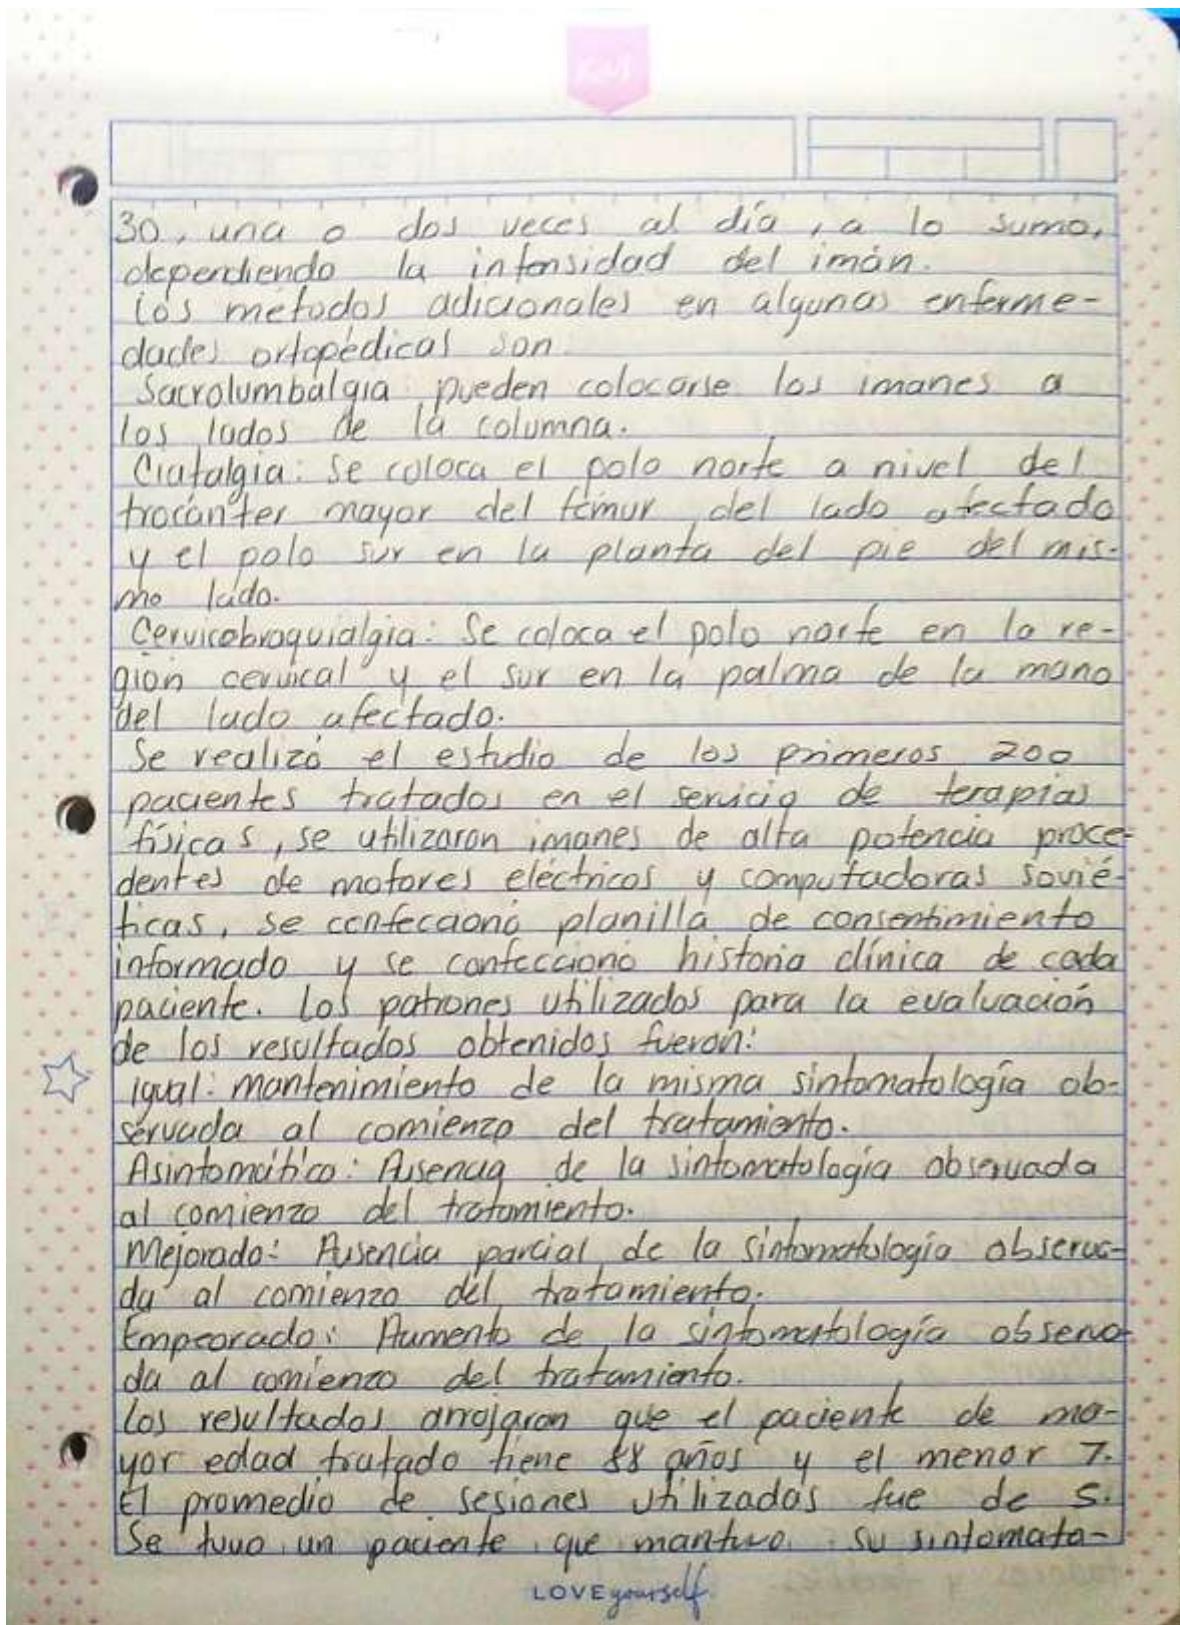 30, una o dos veces al día, a lo sumo,
dependiendo la intensidad del imán.
Los metodos adicionales en algunas enferme-
dades ortopédicas son
Sacrolumbalgia: pueden colocarse los imanes a
los lados de la columna.
Ciatalgia: Se coloca el polo norte a nivel del
trocánter mayor del fémur del lado afectado
y el polo sur en la planta del pie del mis-
mo lado.
Cervicobraquialgia: Se coloca el polo norte en la re-
gión cervical y el sur en la palma de la mano
del lado afectado.
Se realizó el estudio de los primeros 200
pacientes tratados en el servicio de terapias
físicas, se utilizaron imanes de alta potencia proce-
dentes de motores eléctricos y computadoras sovié-
ticas, se confeccionó planilla de consentimiento
informado y se confeccionó historia clínica de cada
paciente. Los patrones utilizados para la evaluación
de los resultados obtenidos fueron:
Igual: mantenimiento de la misma sintomatología ob-
servada al comienzo del tratamiento.
Asintomático: Ausencia de la sintomatología observada
al comienzo del tratamiento.
Mejorado: Ausencia parcial de la sintomatología observa-
da al comienzo del tratamiento.
Empeorado: Aumento de la sintomatología observa-
da al comienzo del tratamiento.
Los resultados arrojaron que el paciente de ma-
yor edad tratado tiene 88 años y el menor 7.
El promedio de sesiones utilizadas fue de 5.
Se tuvo un paciente que mantuvo su sintomato-
LOVE yourself